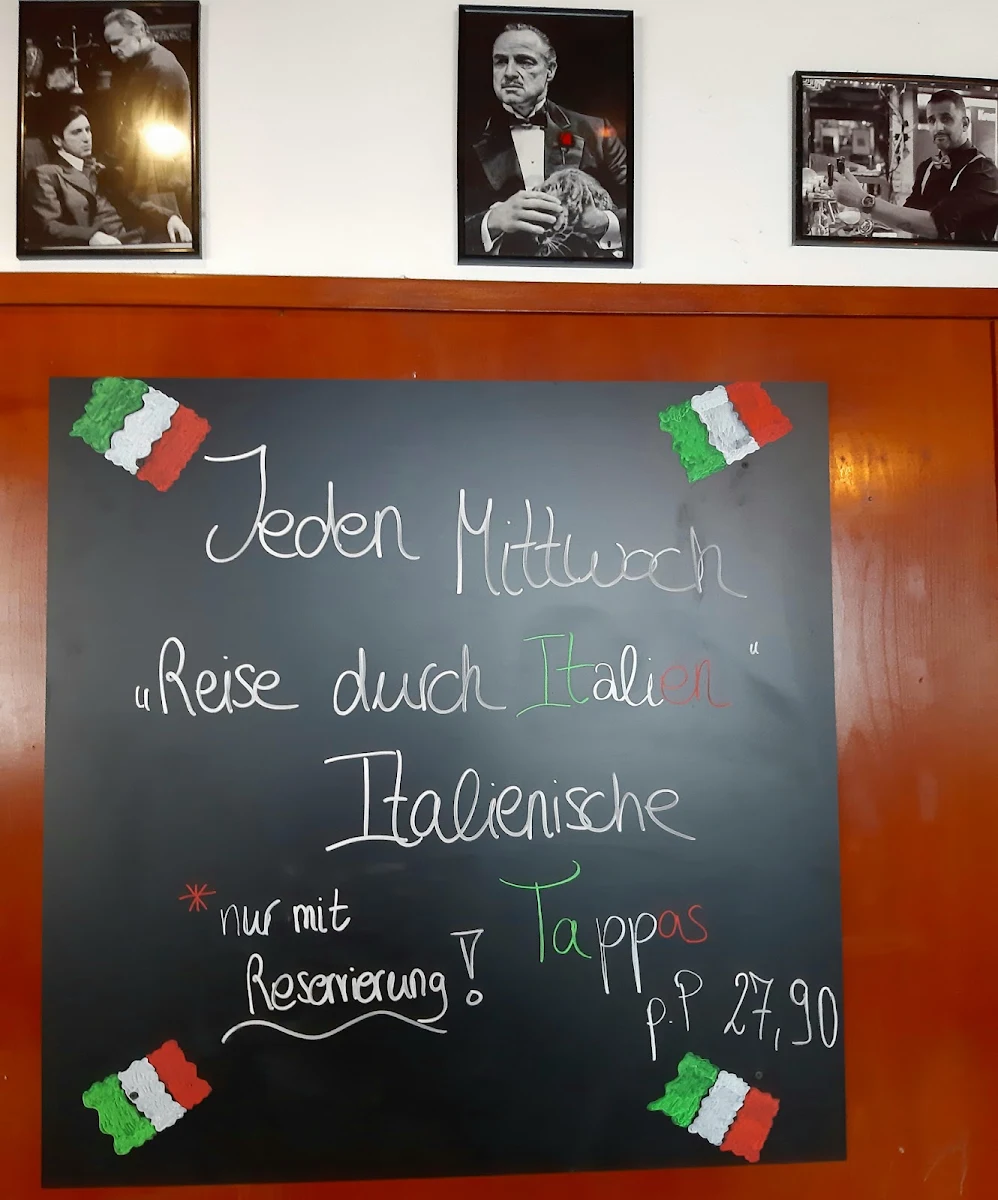 Jeden Mittwoch
„Reise durch Italien“
Italienische
Tappas
*nur mit
Reservierung!
p.P 27,90